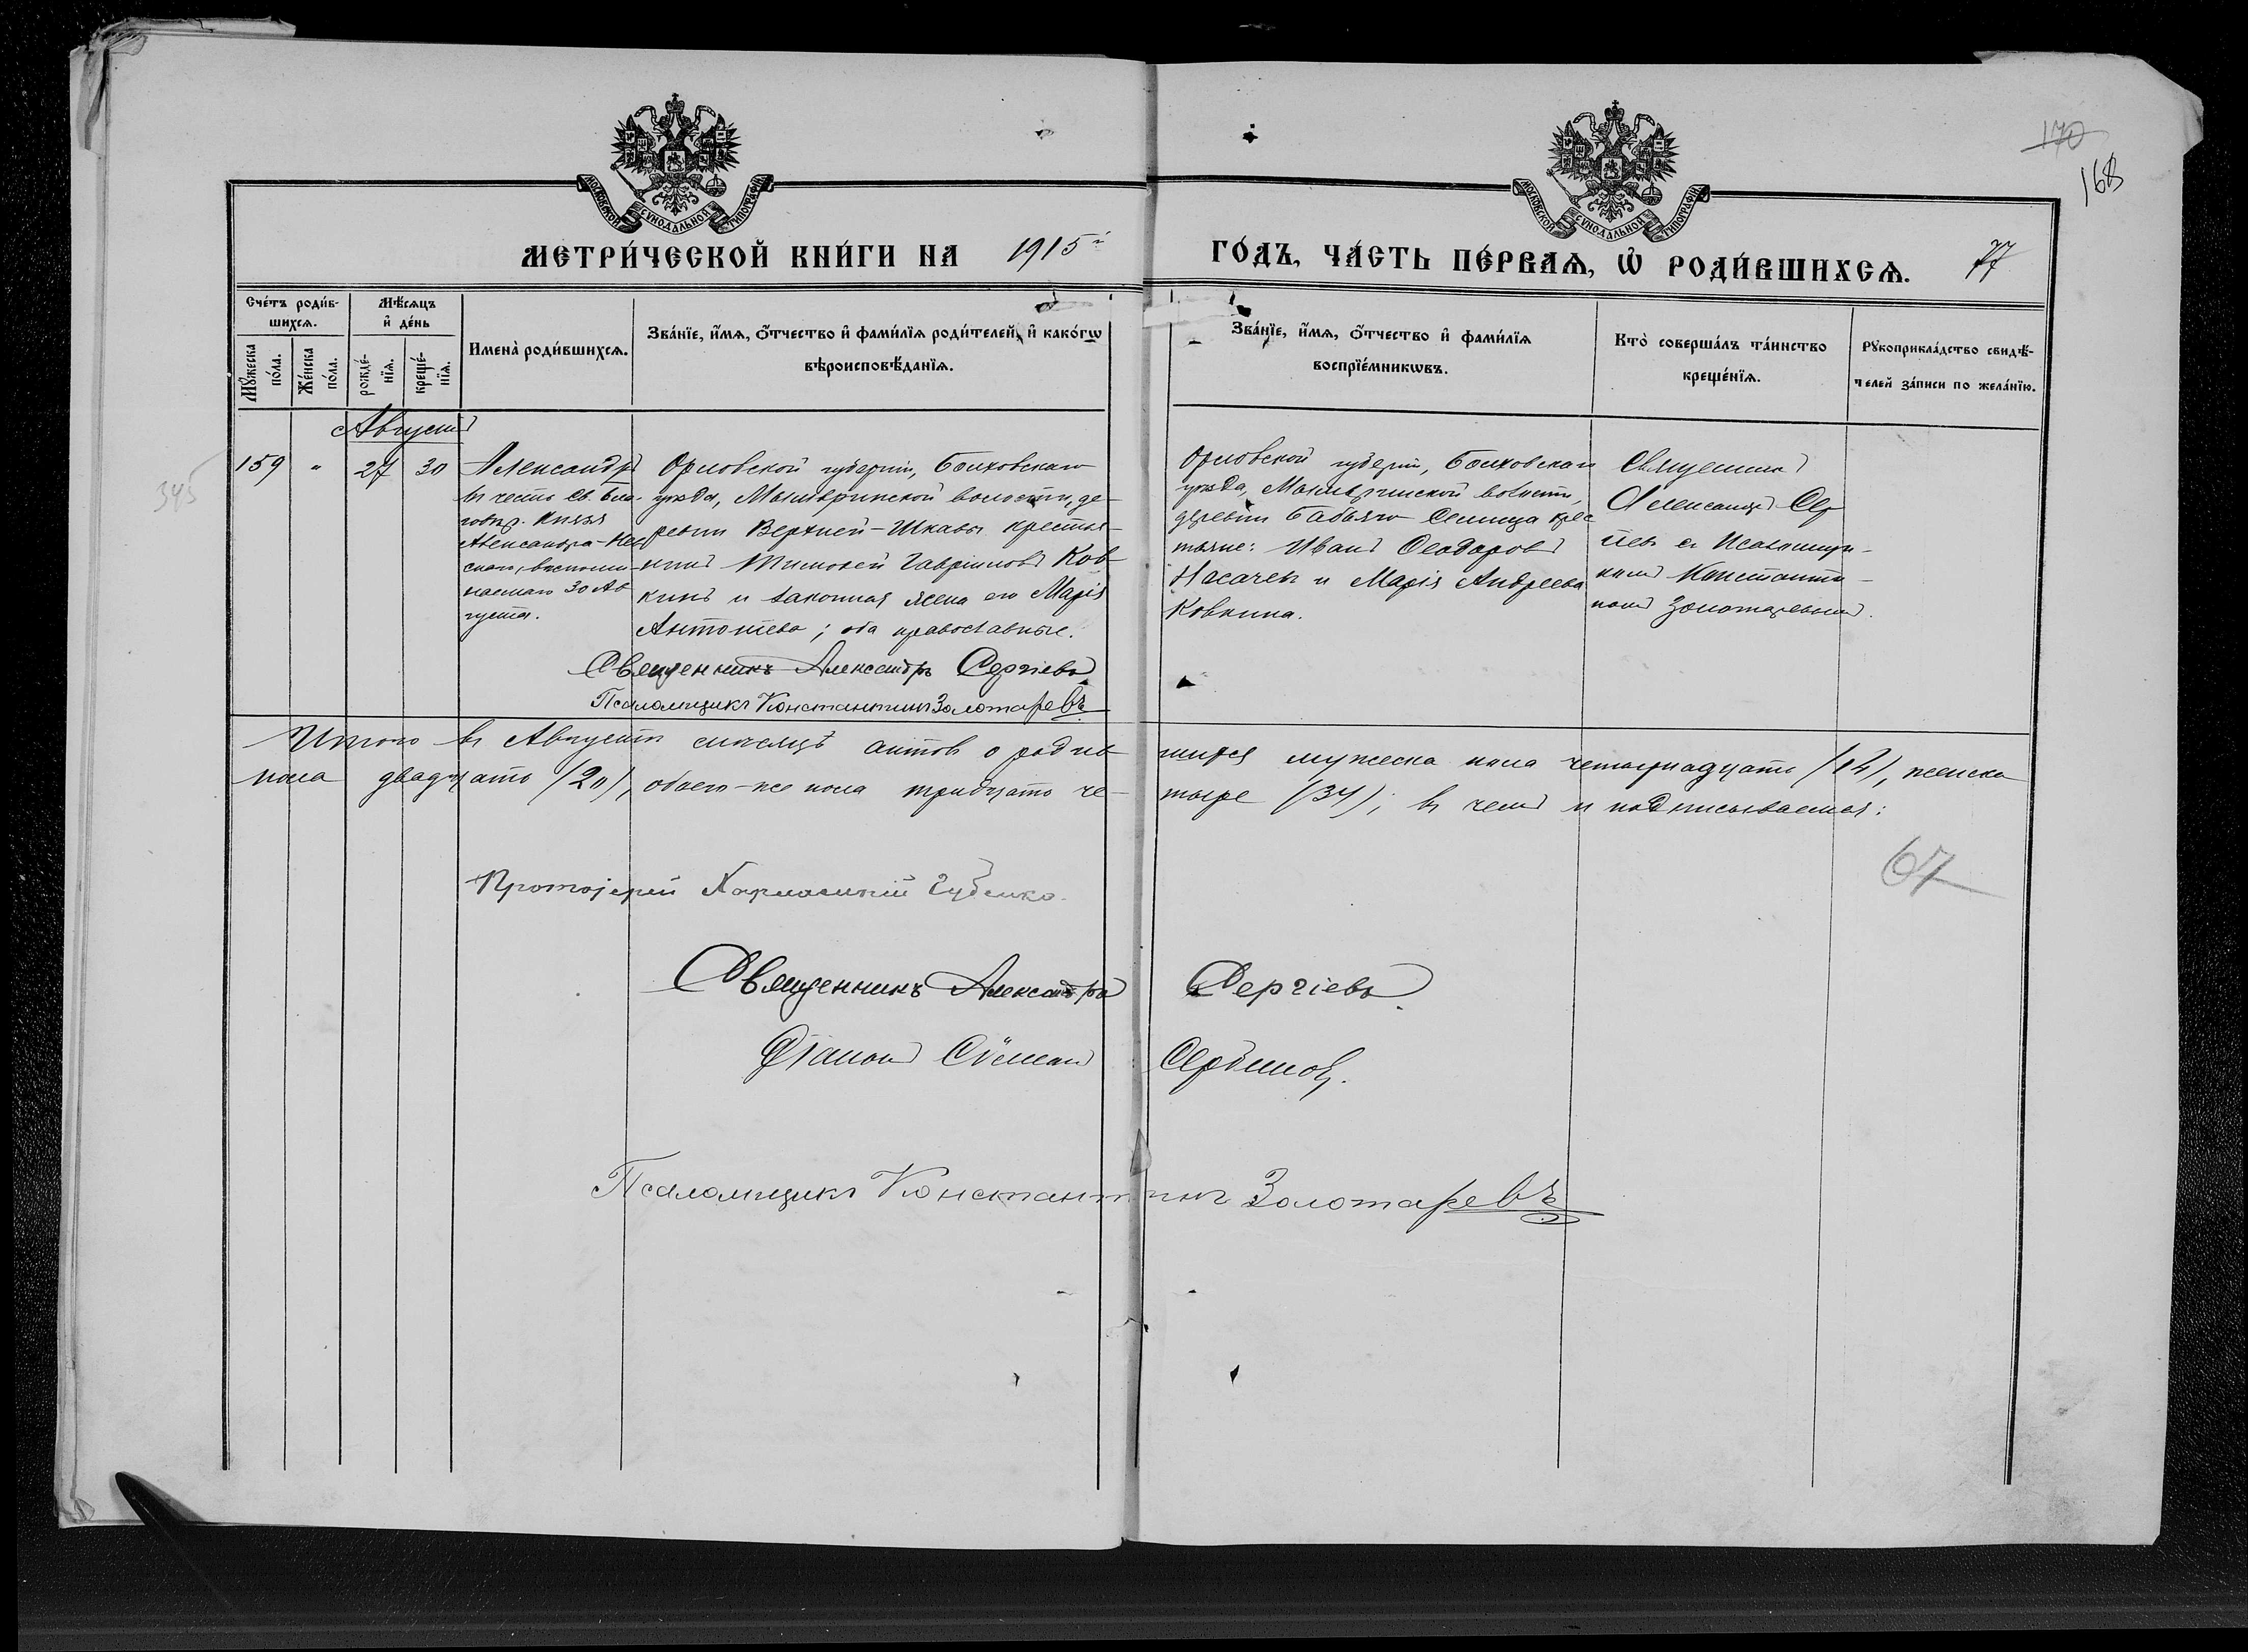 170
168
МОСКОВСКОЙ СѴНОДАЛЬНОЙ ТИПОГРАФІИ
МОСКОВСКОЙ СѴНОДАЛЬНОЙ ТИПОГРАФІИ
МЕТРИ́ЧЕСКОЙ КНИ́ГИ НА 1915й ГО́ДЪ, ЧА́СТЬ ПЕ́РВАѦ, Ѽ РОДИ́ВШИХСѦ. 77
Сче́тъ роди́в-
шихсѧ.
Мѣ́сѧцъ
и҆ де́нь
Мꙋ́жеска по́ла.
Же́нска по́ла.
рожде́-
нїѧ.
креще́-
нїѧ.
Имена̀ роди́вшихсѧ.
Зва́нїе, и҆́мѧ, ѻ҆́тчество и҆ фами́лїѧ роди́телей, и҆ како́гѡ
вѣроисповѣ́данїѧ.
Зва́нїе, и҆́мѧ, ѻ҆́тчество и҆ фами́лїѧ
воспрїе́мникѡвъ.
Кто̀ соверша́лъ та́инство
креще́нїѧ.
Рꙋкоприкла́дство свидѣ́-
телей за́писи по жела́нїю.
Августъ
345
159 " 27 30
Александръ
въ честь Св. Бла-
говѣр. Князя
Александра-Нев-
скаго, воспоми-
наемаго 30 Ав-
густа.
Орловской губерніи, Болховскаго
уѣзда, волости, де-
ревни Верхней-Шкавы крестья-
нинъ Тимоѳей Гавріиловъ Ков-
кинъ и законная жена его Марія
Антоніева; оба православные.
Священникъ Александръ Сергіевъ
Псаломщикъ Константинъ Золотаревъ
Орловской губерніи, Болховскаго
уѣзда, волости,
деревни Селища крес-
тьяне: Иванъ Ѳеодоровъ
и Марія Андреева
Ковкина.
Священникъ
Александръ Сер-
гіевъ съ Псаломщи-
комъ Константи-
номъ Золотаревымъ.
Итого въ Августѣ мѣсяцѣ актовъ о родив- шихся мужеска пола четырнадцать (14), женска
пола двадцать (20), обоего-же пола тридцать че- тыре (34); въ чемъ и подписываемся:
67
Протоіерей Харлампій Губенко.
Священникъ Александръ Сергіевъ.
Діаконъ Сѵмеонъ
Псаломщикъ Константинъ Золотаревъ